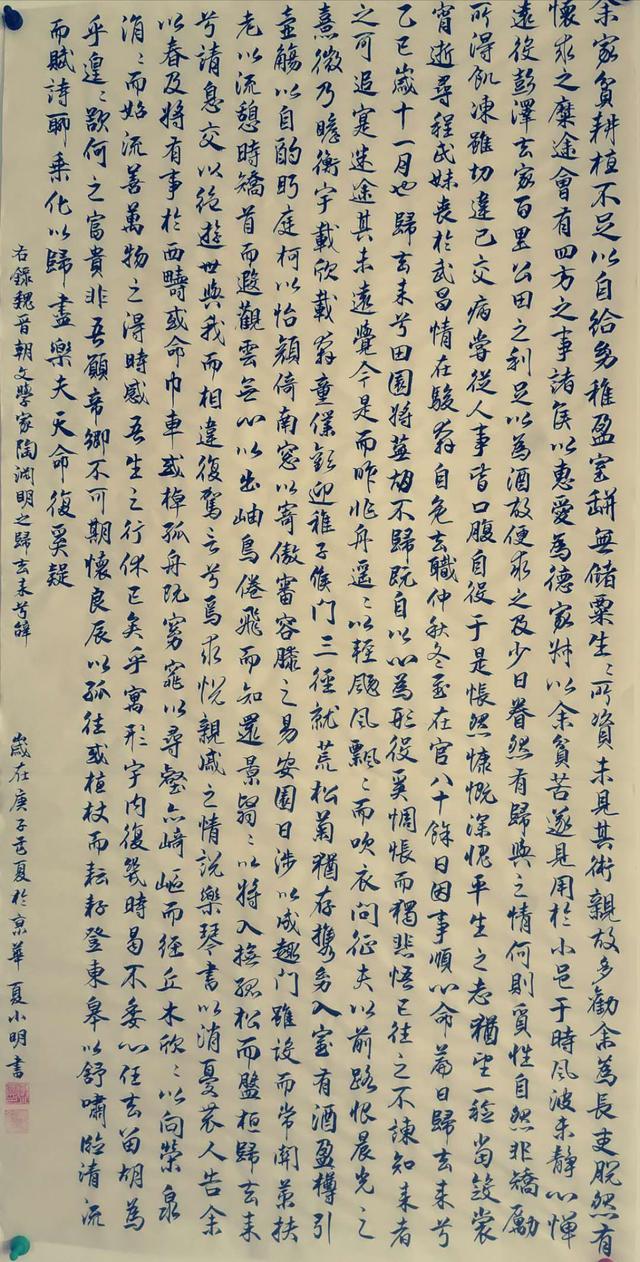 余家貧耕植不足以自給幼稚盈室缾無儲粟生〻所資未見其術親故多勸余為長吏脫然有
懷求之靡途會有四方之事諸侯以惠愛為德家叔以余貧苦遂見用於小邑于時風波未靜心憚
遠役彭澤去家百里公田之利足以為酒故便求之及少日眷然有歸與之情何則質性自然非矯勵
所得飢凍雖切違己交病嘗從人事皆口腹自役于是悵然慷慨深愧平生之志猶望一稔當斂裳
宵逝尋程氏妹喪於武昌情在駿奔自免去職仲秋冬至在官八十餘日因事順心命篇曰歸去來兮
乙巳歲十一月也歸去來兮田園將蕪胡不歸既自以心為形役奚惆悵而獨悲悟已往之不諫知來者
之可追寔迷途其未遠覺今是而昨非舟遥〻以輕颺風飄〻而吹衣問征夫以前路恨晨光之
熹微乃瞻衡宇載欣載奔童僕歡迎稚子候門三徑就荒松菊猶存攜幼入室有酒盈樽引
壺觴以自酌眄庭柯以怡顏倚南窓以寄傲審容膝之易安園日涉以成趣門雖設而常関策扶
老以流憩時矯首而遐觀雲無心以出岫鳥倦飛而知還景翳〻以將入撫孤松而盤桓歸去來
兮請息交以絕遊世與我而相違復駕言兮焉求悅親戚之情說樂琴書以消憂農人告余
以春及將有事於西疇或命巾車或棹孤舟既窈窕以尋壑亦崎嶇而經丘木欣〻以向榮泉
涓〻而始流善萬物之得時感吾生之行休已矣乎寓形宇內復幾時曷不委心任去留胡為
乎遑〻欲何之富貴非吾願帝鄉不可期懷良辰以孤往或植杖而耘耔登東皋以舒嘯臨清流
而賦詩聊乘化以歸盡樂夫天命復奚疑
右錄魏晉朝文學家陶淵明之歸去來兮辭 歲在庚子孟夏於京華 夏小明書